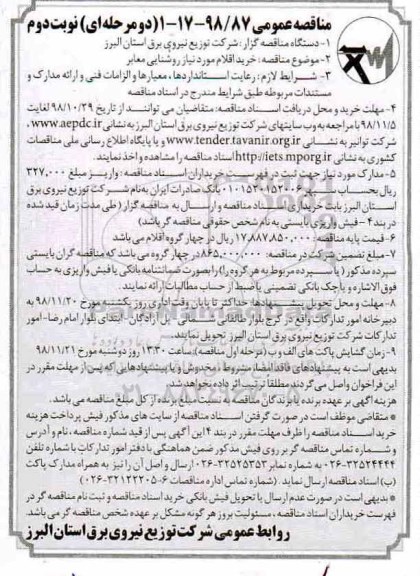 مناقصه عمومی ۹۸/۸۷-۱۷-۱ (دو مرحله ای) نوبت دوم
۱- دستگاه مناقصه گزار: شرکت توزیع نیروی برق استان البرز
۲- موضوع مناقصه: خرید اقلام مورد نیاز روشنایی معابر
۳- شرایط لازم: رعایت استانداردها، معیارها و الزامات فنی و ارائه مدارک و
مستندات مربوطه طبق شرایط مندرج در اسناد مناقصه
۴- مهلت خرید و محل دریافت اسناد مناقصه: متقاضیان می توانند از تاریخ ۹۸/۱۰/۲۹ لغایت
۹۸/۱۱/۵ با مراجعه به وب سایتهای شرکت توزیع نیروی برق استان البرز به نشانی www.aepdc.ir ،
شرکت توانیر به نشانی www.tender.tavanir.org.ir و یا پایگاه اطلاع رسانی ملی مناقصات
کشوری به نشانی http://iets.mporg.ir اسناد مناقصه را مشاهده و اخذ نمایند.
۵- مدارک مورد نیاز جهت ثبت در فهرست خریداران اسناد مناقصه: واریز مبلغ ۳۲۷,۰۰۰
ریال بحساب سپهر بانک صادرات ایران به نام شرکت توزیع نیروی برق
استان البرز بابت خریداری اسناد مناقصه و ارسال به مناقصه گزار (طی مدت زمان قید شده
در بند ۴ - فیش واریزی بایستی به نام شخص حقوقی مناقصه گر باشد)
۶- قیمت پایه مناقصه: ۱۷,۸۸۷,۸۵۰,۰۰۰ ریال در چهار گروه اقلام می باشد
۷- مبلغ تضمین شرکت در مناقصه: ۸۶۵,۰۰۰,۰۰۰ در چهار گروه می باشد که مناقصه گران بایستی
سپرده مذکور (یا سپرده مربوط به هر گروه را) را بصورت ضمانتنامه بانکی یا فیش واریزی به حساب
فوق الاشاره و یا چک بانکی تضمینی یا ضبط از حساب مطالبات ارائه نمایند.
۸- مهلت و محل تحویل پیشنهادها: حداکثر تا پایان وقت اداری روز یکشنبه مورخ ۹۸/۱۱/۲۰ به
دبیرخانه امور تدارکات واقع در کرج بلوار طالقانی شمالی پل آزادگان - ابتدای بلوار امام رضا - امور
تدارکات شرکت توزیع نیروی برق استان البرز تحویل نمایند.
۹- زمان گشایش پاکت های الف و ب (مرحله اول مناقصه): ساعت ۱۳:۳۰ روز دوشنبه مورخ ۹۸/۱۱/۲۱
بدیهی است به پیشنهادهای فاقد امضا، مشروط و مخدوش و یا پیشنهادهایی که پس از مهلت مقرر در
این فراخوان واصل می گردند مطلقا ترتیب اثر داده نخواهد شد.
هزینه آگهی بر عهده برنده یا برندگان مناقصه به نسبت مبلغ برنده از کل مبلغ مناقصه می باشد.
* متقاضی موظف است در صورت گرفتن اسناد مناقصه از سایت های مذکور فیش پرداخت هزینه
خرید اسناد مناقصه را ظرف مهلت مقرر در بند ۴ این آگهی پس از قید شماره مناقصه، نام و آدرس
و شماره تماس مناقصه گر بر روی فیش مذکور ضمن هماهنگی با دفتر امور تدارکات با شماره تلفن
۰۲۶-۳۲۵۲۴۴۴۴ به شماره نمابر ۰۲۶-۳۲۵۲۵۳۵۳ ارسال و اصل آن را نیز به همراه مدارک پاکت
(ب) اسناد مناقصه ارسال نماید. (شماره تماس اداره مناقصات ۶-۳۲۱۲۲۲۰۵-۰۲۶)
* بدیهی است در صورت عدم ارسال یا تحویل فیش بانکی خرید اسناد مناقصه و ثبت نام مناقصه گر در
فهرست خریداران اسناد مناقصه، مسئولیت بروز هر گونه مشکل بر عهده شخص مناقصه گر می باشد.
روابط عمومی شرکت توزیع نیروی برق استان البرز